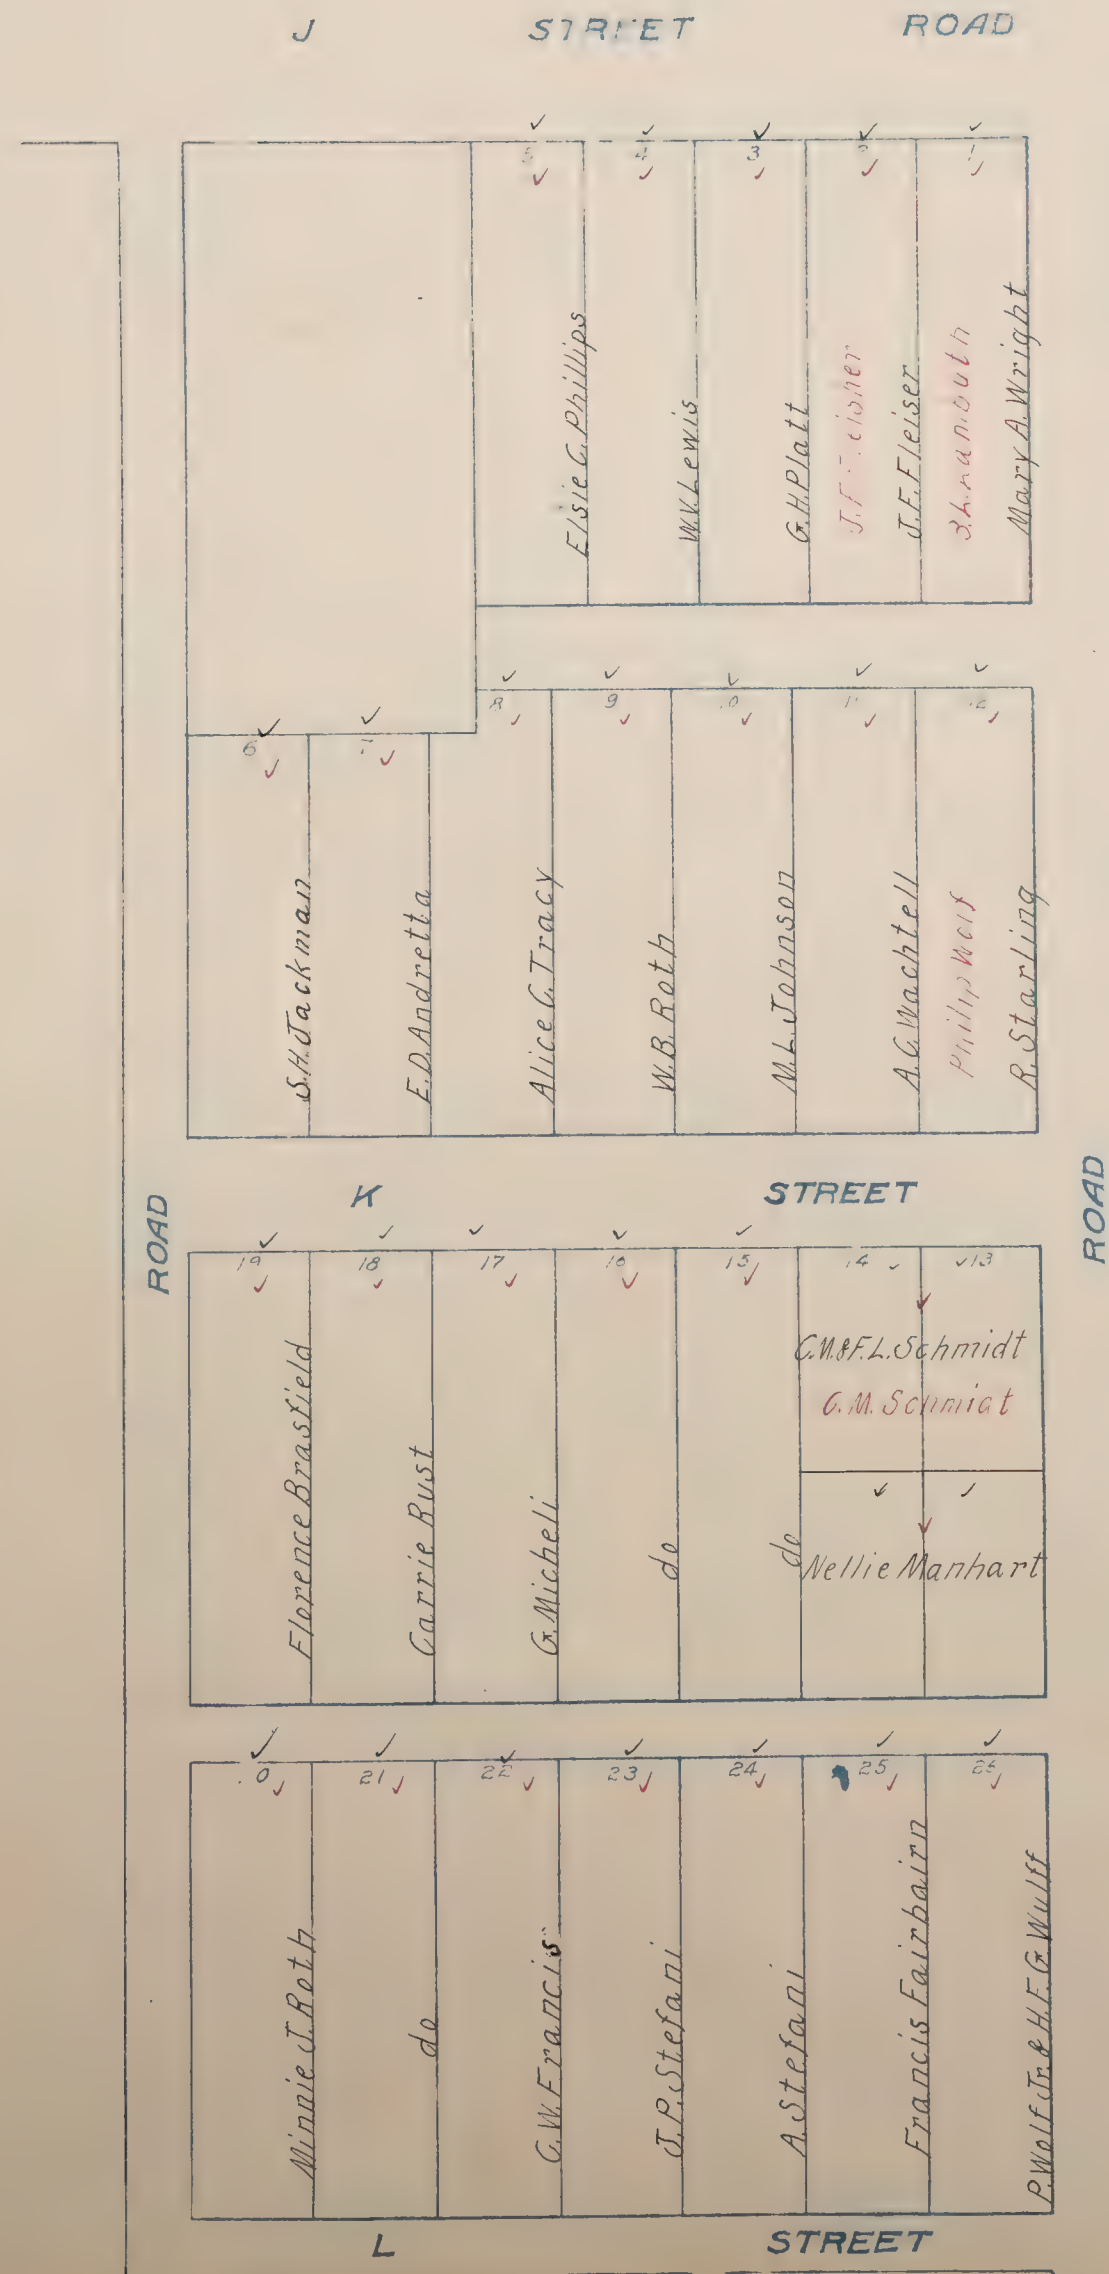 J STREET ROAD
5 4 3 2 1
Elsie C. Phillips
W.V. Lewis
G.H. Platt
J.F. Fleiser
Mary A. Wright
8 9 10 11 12
6 7
S.H. Jackman
E.D. Andretta
Alice C. Tracy
W.B. Roth
M.L. Johnson
A.C. Wachtell
Philip Wolf
R. Starling
ROAD
K STREET
ROAD
19 18 17 16 15 14 13
C.M. & F.L. Schmidt
C.M. Schmidt
Florence Brasfield
Carrie Rust
G. Micheli
do
do
Nellie Manhart
20 21 22 23 24 25 26
Minnie J. Roth
do
C.W. Francis
J.P. Stefani
A. Stefani
Francis Fairbairn
P. Wolf Jr. & H.F.G Wulff
L STREET